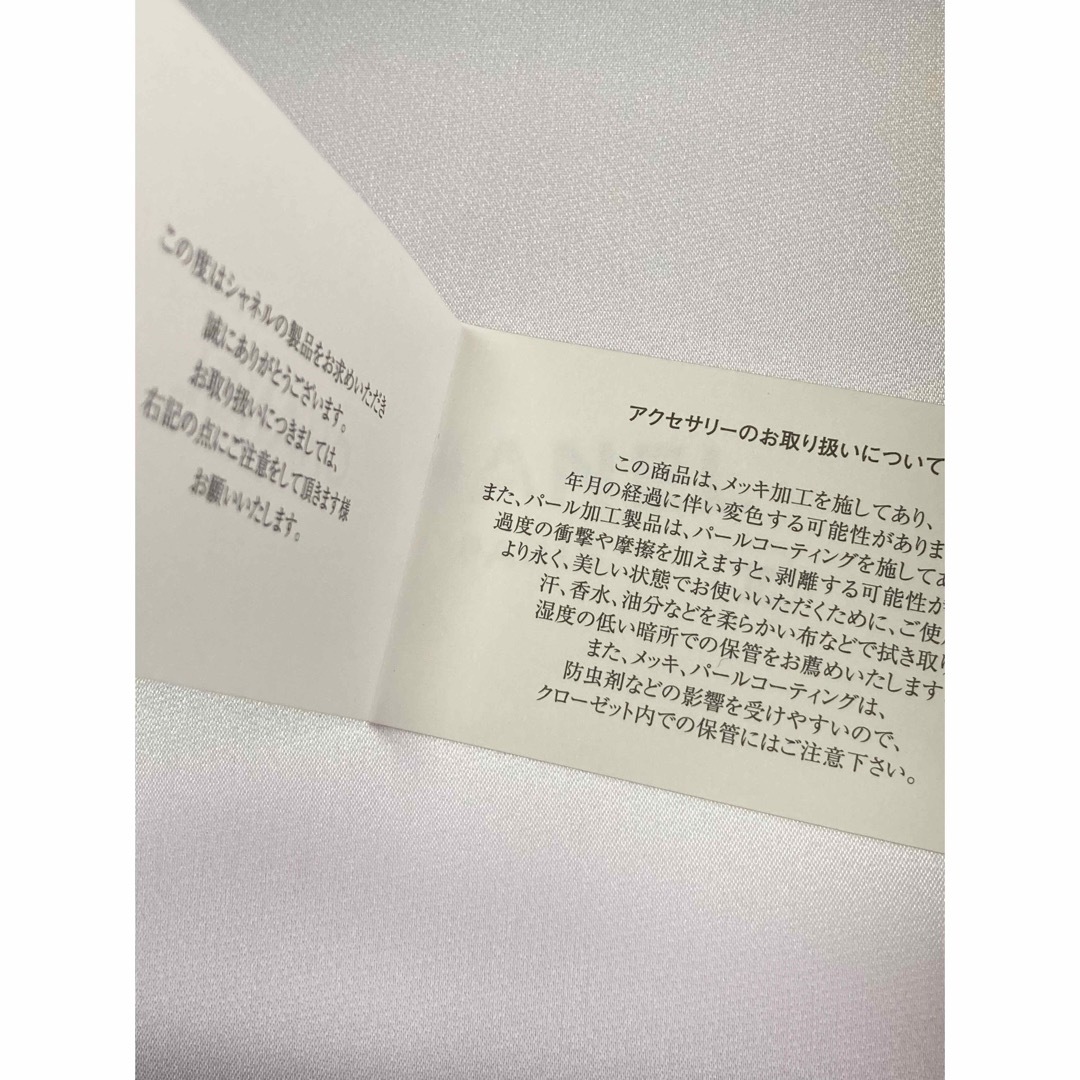 この度はシャネルの製品をお求めいただき
誠にありがとうございます。
お取り扱いにつきましては、
右記の点にご注意をして頂きます様
お願いいたします。
アクセサリーのお取り扱いについて
この商品は、メッキ加工を施してあり、
年月の経過に伴い変色する可能性がありま
また、パール加工製品は、パールコーティングを施してあ
過度の衝撃や摩擦を加えますと、剥離する可能性が
より永く、美しい状態でお使いいただくために、ご使
汗、香水、油分などを柔らかい布などで拭き取り
湿度の低い暗所での保管をお薦めいたします
また、メッキ、パールコーティングは、
防虫剤などの影響を受けやすいので、
クローゼット内での保管にはご注意下さい。